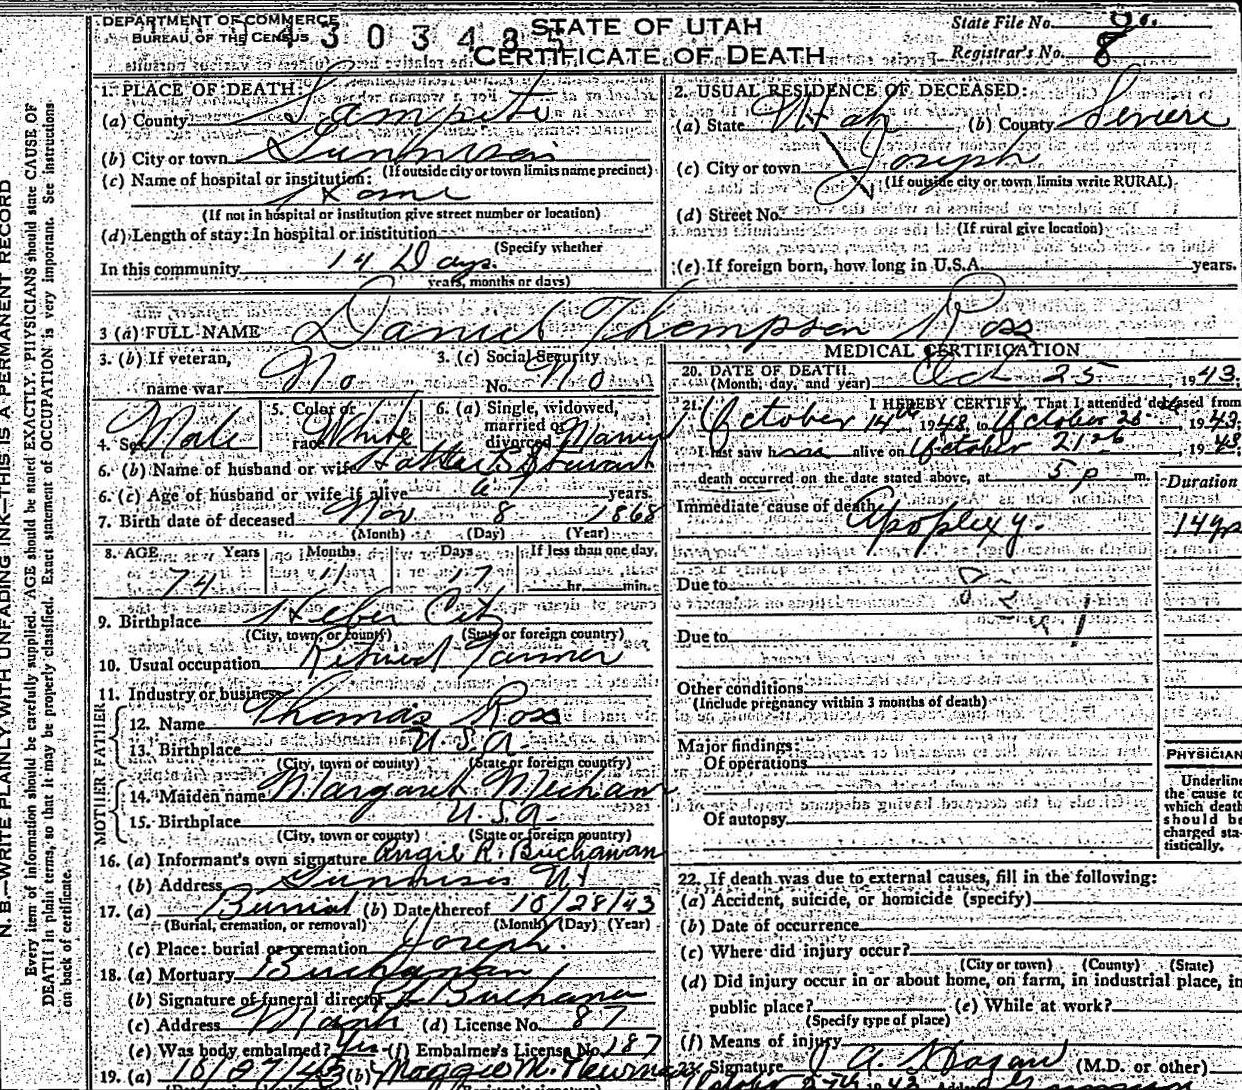 DEPARTMENT OF COMMERCE
BUREAU OF THE CENSUS
4303485
STATE OF UTAH
CERTIFICATE OF DEATH
State File No.
Registrar's No. 8
N. B.—WRITE PLAINLY, WITH UNFADING INK—THIS IS A PERMANENT RECORD
Every item of information should be carefully supplied. AGE should be stated EXACTLY. PHYSICIANS should state CAUSE OF
DEATH in plain terms, so that it may be properly classified. Exact statement of OCCUPATION is very important. See instructions
on back of certificate.
1. PLACE OF DEATH:
(a) County Sanpete
(b) City or town Gunnison
(If outside city or town limits name precinct)
(c) Name of hospital or institution:
Home
(If not in hospital or institution give street number or location)
(d) Length of stay: In hospital or institution
(Specify whether
In this community 14 Days.
years, months or days)
2. USUAL RESIDENCE OF DECEASED:
(a) State Utah (b) County Sevier
(c) City or town Joseph
(If outside city or town limits write RURAL)
(d) Street No.
(If rural give location)
(e) If foreign born, how long in U.S.A. years.
3 (a) FULL NAME Daniel Thompson Ross
3. (b) If veteran,
name war No
3. (c) Social Security
No. No
4. Sex Male
5. Color or
race White
6. (a) Single, widowed,
married or
divorced Married
6. (b) Name of husband or wife Stewart
6. (c) Age of husband or wife if alive years.
7. Birth date of deceased Nov 8 1868
(Month) (Day) (Year)
8. AGE Years Months Days If less than one day
74 11 17 hr. min.
9. Birthplace Heber City
(City, town, or county) (State or foreign country)
10. Usual occupation Retired Farmer
11. Industry or business
FATHER
12. Name Thomas Ross
13. Birthplace U.S.A.
(City, town or county) (State or foreign country)
MOTHER
14. Maiden name Margaret Mecham
15. Birthplace U.S.A.
(City, town or county) (State or foreign country)
16. (a) Informant's own signature Angie R. Buchanan
(b) Address Ut
17. (a) Burial (b) Date thereof 10/28/43
(Burial, cremation, or removal) (Month) (Day) (Year)
(c) Place: burial or cremation Joseph.
18. (a) Mortuary Buchanan
(b) Signature of funeral director Buchanan
(c) Address (d) License No. 87
(e) Was body embalmed? Yes (f) Embalmer's License No. 187
19. (a) 10/27/43 (b) Maggie M.
MEDICAL CERTIFICATION
20. DATE OF DEATH
(Month, day, and year) Oct 25, 1943;
21. I HEREBY CERTIFY, That I attended deceased from
October 14th 1943, to October 1943;
I last saw him alive on October 1943;
death occurred on the date stated above, at 5 p m.
Duration
Immediate cause of death Apoplexy.
Due to
Due to
Other conditions
(Include pregnancy within 3 months of death)
Major findings:
Of operations
Of autopsy
PHYSICIAN
Underline
the cause to
which death
should be
charged sta-
tistically.
22. If death was due to external causes, fill in the following:
(a) Accident, suicide, or homicide (specify)
(b) Date of occurrence
(c) Where did injury occur?
(City or town) (County) (State)
(d) Did injury occur in or about home, on farm, in industrial place, in
public place? (e) While at work?
(Specify type of place)
(f) Means of injury
Signature J. A. Hagan (M.D. or other)